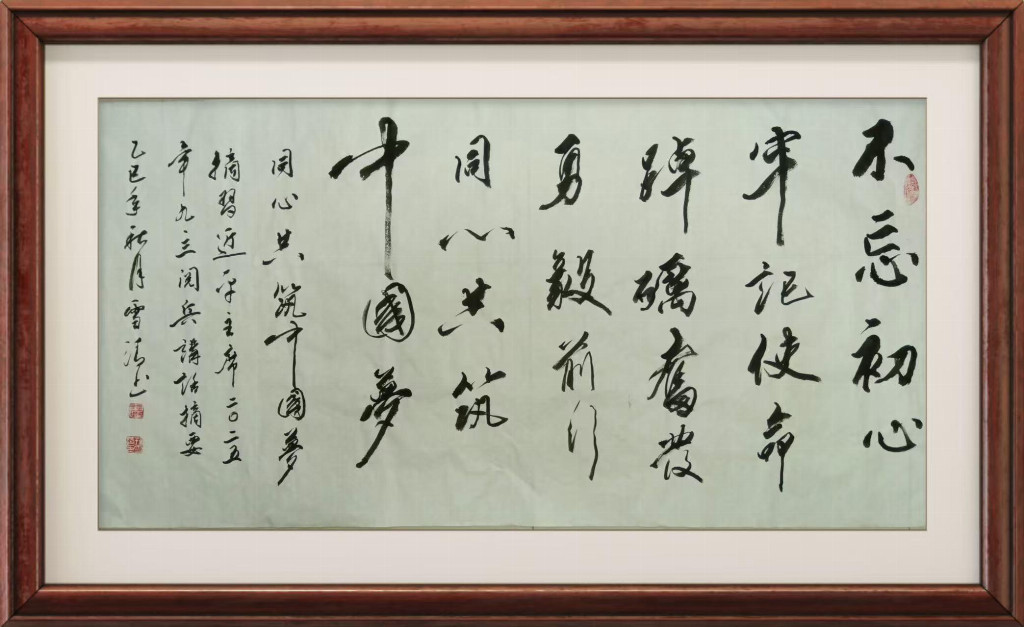 不忘初心
牢記使命
踔礪奮發
勇毅前行
同心共筑
中國夢
同心共筑中國夢
摘習近平主席二〇二五
年九三阅兵講話摘要
乙巳年秋月雪清书